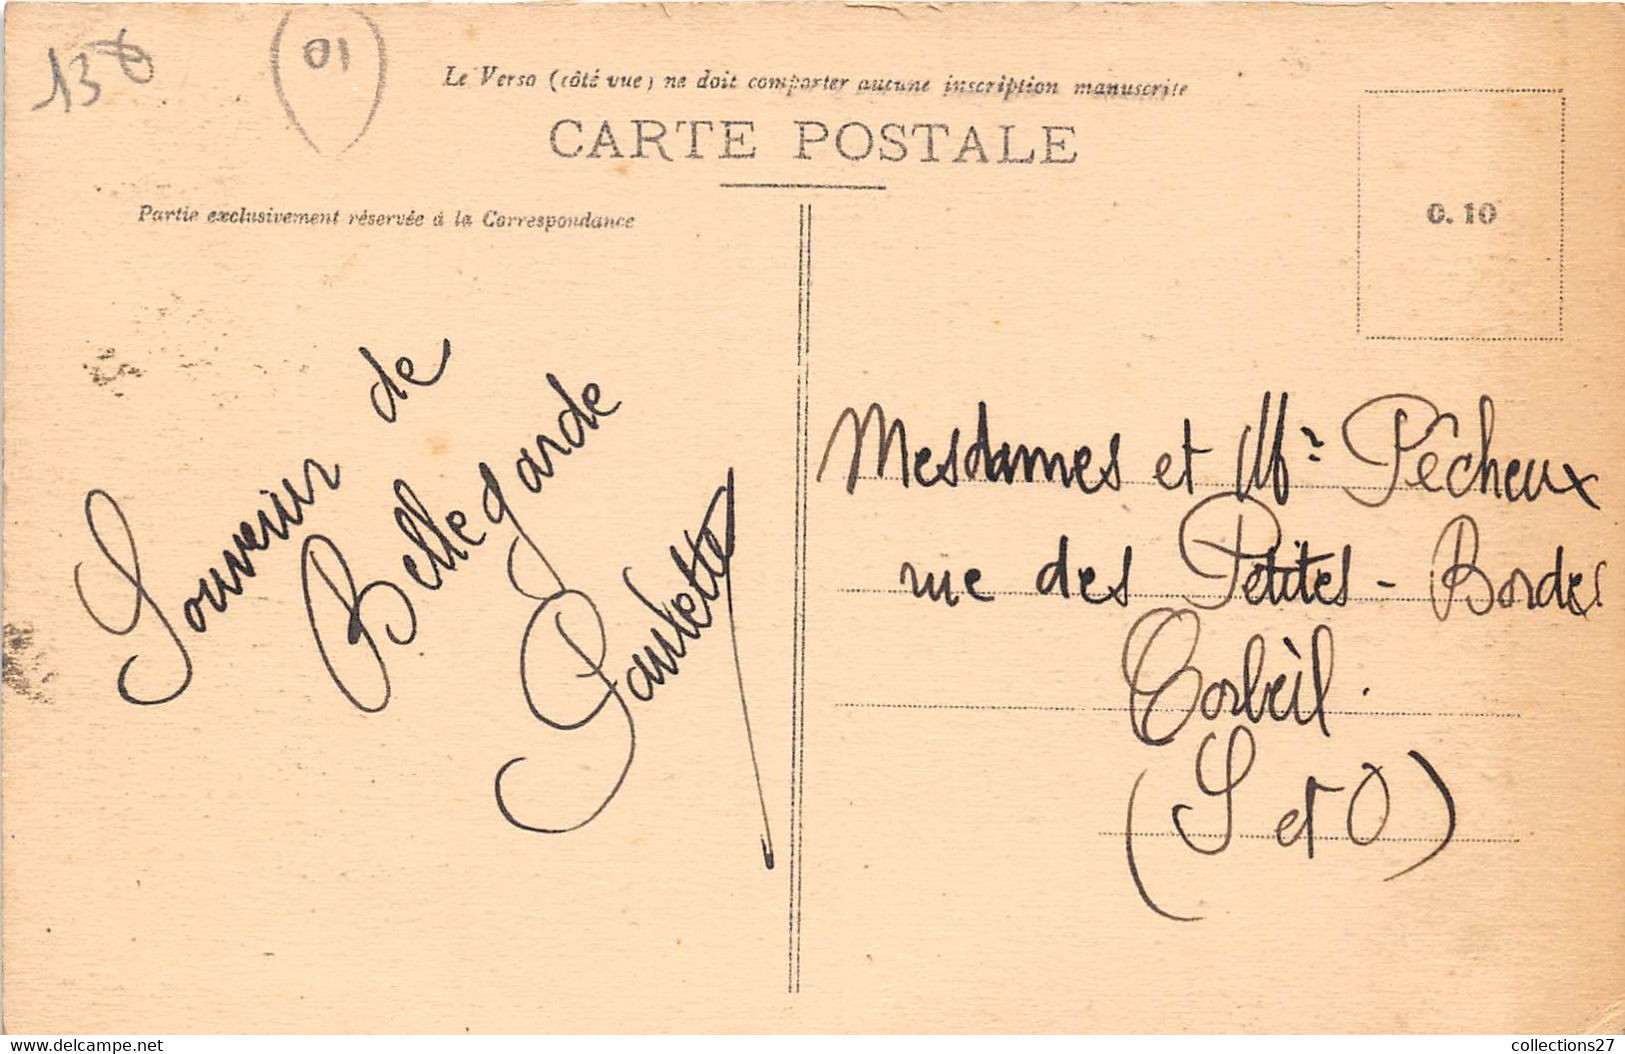 138
01
Le Verso (côté vue) ne doit comporter aucune inscription manuscrite
CARTE POSTALE
Partie exclusivement réservée à la Correspondance
0.10
Souvenir de
Bellegarde
Paulette
Mesdames et Mr Pêcheux
rue des Petites - Bordes
Corbeil.
(S et O)
collections27